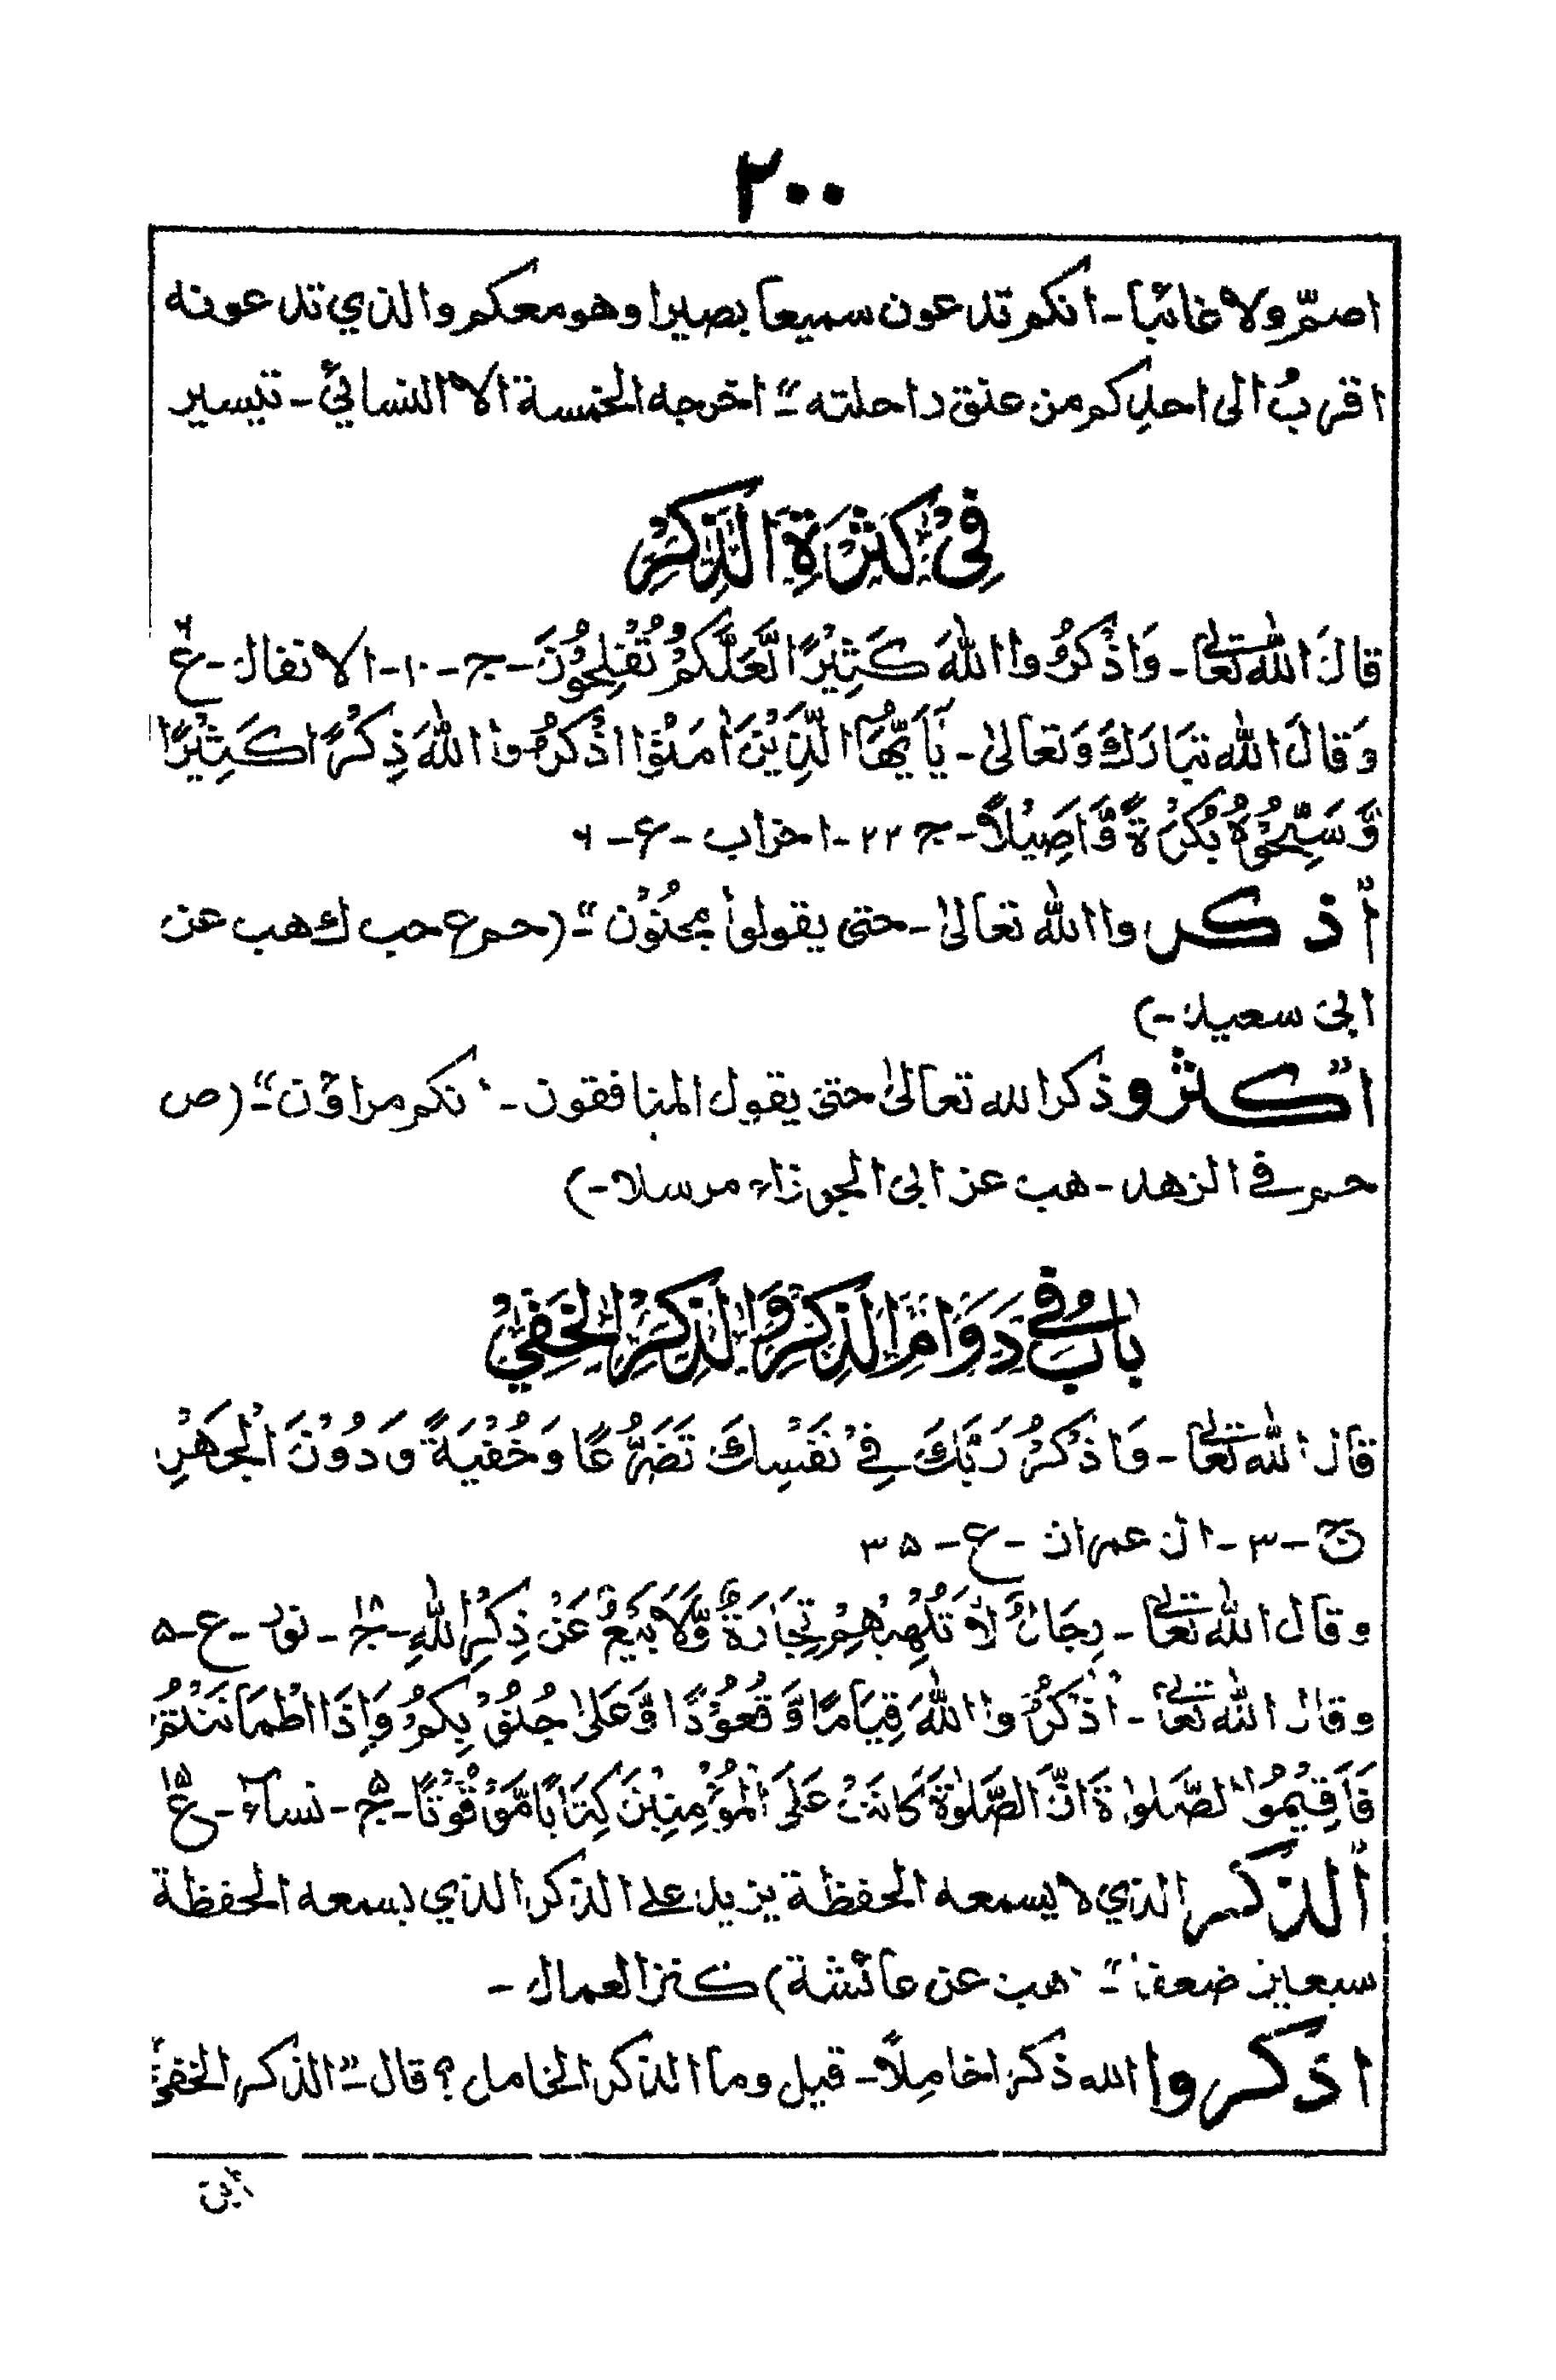 ٢٠٠
اصمّ ولا غائبا - انكم تدعون سميعا بصيرا وهو معكم والذي تدعونه
اقربُ الى احدِكم من عنق راحلته" - اخرجه الخمسة الا النسائيّ - تيسير
فِيْ كَثْرَةِ الذِّكْرِ
قالَ اللهُ تعالىٰ - وَاذْكُرُوا اللهَ كَثِيْرًا لَّعَلَّكُمْ تُفْلِحُوْنَ - ج - ١٠ - الانفال - ع ٦
وَقالَ الله تبَارَكَ وَتعالىٰ - يٰاَيُّهَا الَّذِيْنَ اٰمَنُوْا اذْكُرُوا اللهَ ذِكْرًا كَثِيْرًا
وَّسَبِّحُوْهُ بُكْرَةً وَّاَصِيْلًا - ج ٢٢ - احزاب - ع - ٦
"أذكروا الله تعالىٰ - حتى يقولوا مجنُوْن" - (حم ع حب ك هب عن
ابى سعيد -)
"اكثرو ذكر الله تعالىٰ حتى يقول المنافقون - انكم مراؤن" - (ص
حم في الزهد - هب عن ابى الجوزاء مرسلا -)
بابُ فِي دَوَامِ الذِّكْرِ وَالذِّكْرِ الخَفِيْ
قال الله تعالىٰ - وَاذْكُرْ رَبَّكَ فِيْ نَفْسِكَ تَضَرُّعًا وَخُفْيَةً وَدُوْنَ الْجَهْرِ
ج - ٣ - ال عمران - ع - ٣٥
وقال الله تعالىٰ - رِجَالٌ لَا تُلْهِيْهِمْ تِجَارَةٌ وَّلَا بَيْعٌ عَنْ ذِكْرِ اللهِ - ج ١٨ - نور - ع - ٥
وقال الله تعالىٰ - اُذْكُرُوا اللهَ قِيَامًا وَّقُعُوْدًا وَّعَلىٰ جُنُوْبِكُمْ وَاِذَا اطْمَانَنْتُمْ
فَاَقِيْمُوا الصَّلوٰةَ اِنَّ الصَّلوٰةَ كَانَتْ عَلَى الْمُؤْمِنِيْنَ كِتَابًا مَّوْقُوْتًا - ج ٥ - نساء - ع ١٥
"ألذكر الذي لا يسمعه الحفظة يزيد على الذكر الذي يسمعه الحفظة
سبعين ضعفا" - (هب عن عائشة) كنز العمال -
"اذكروا الله ذكرا خامِلًا - قيل وما الذكر الخامل؟ قال - "الذكر الخفيّ